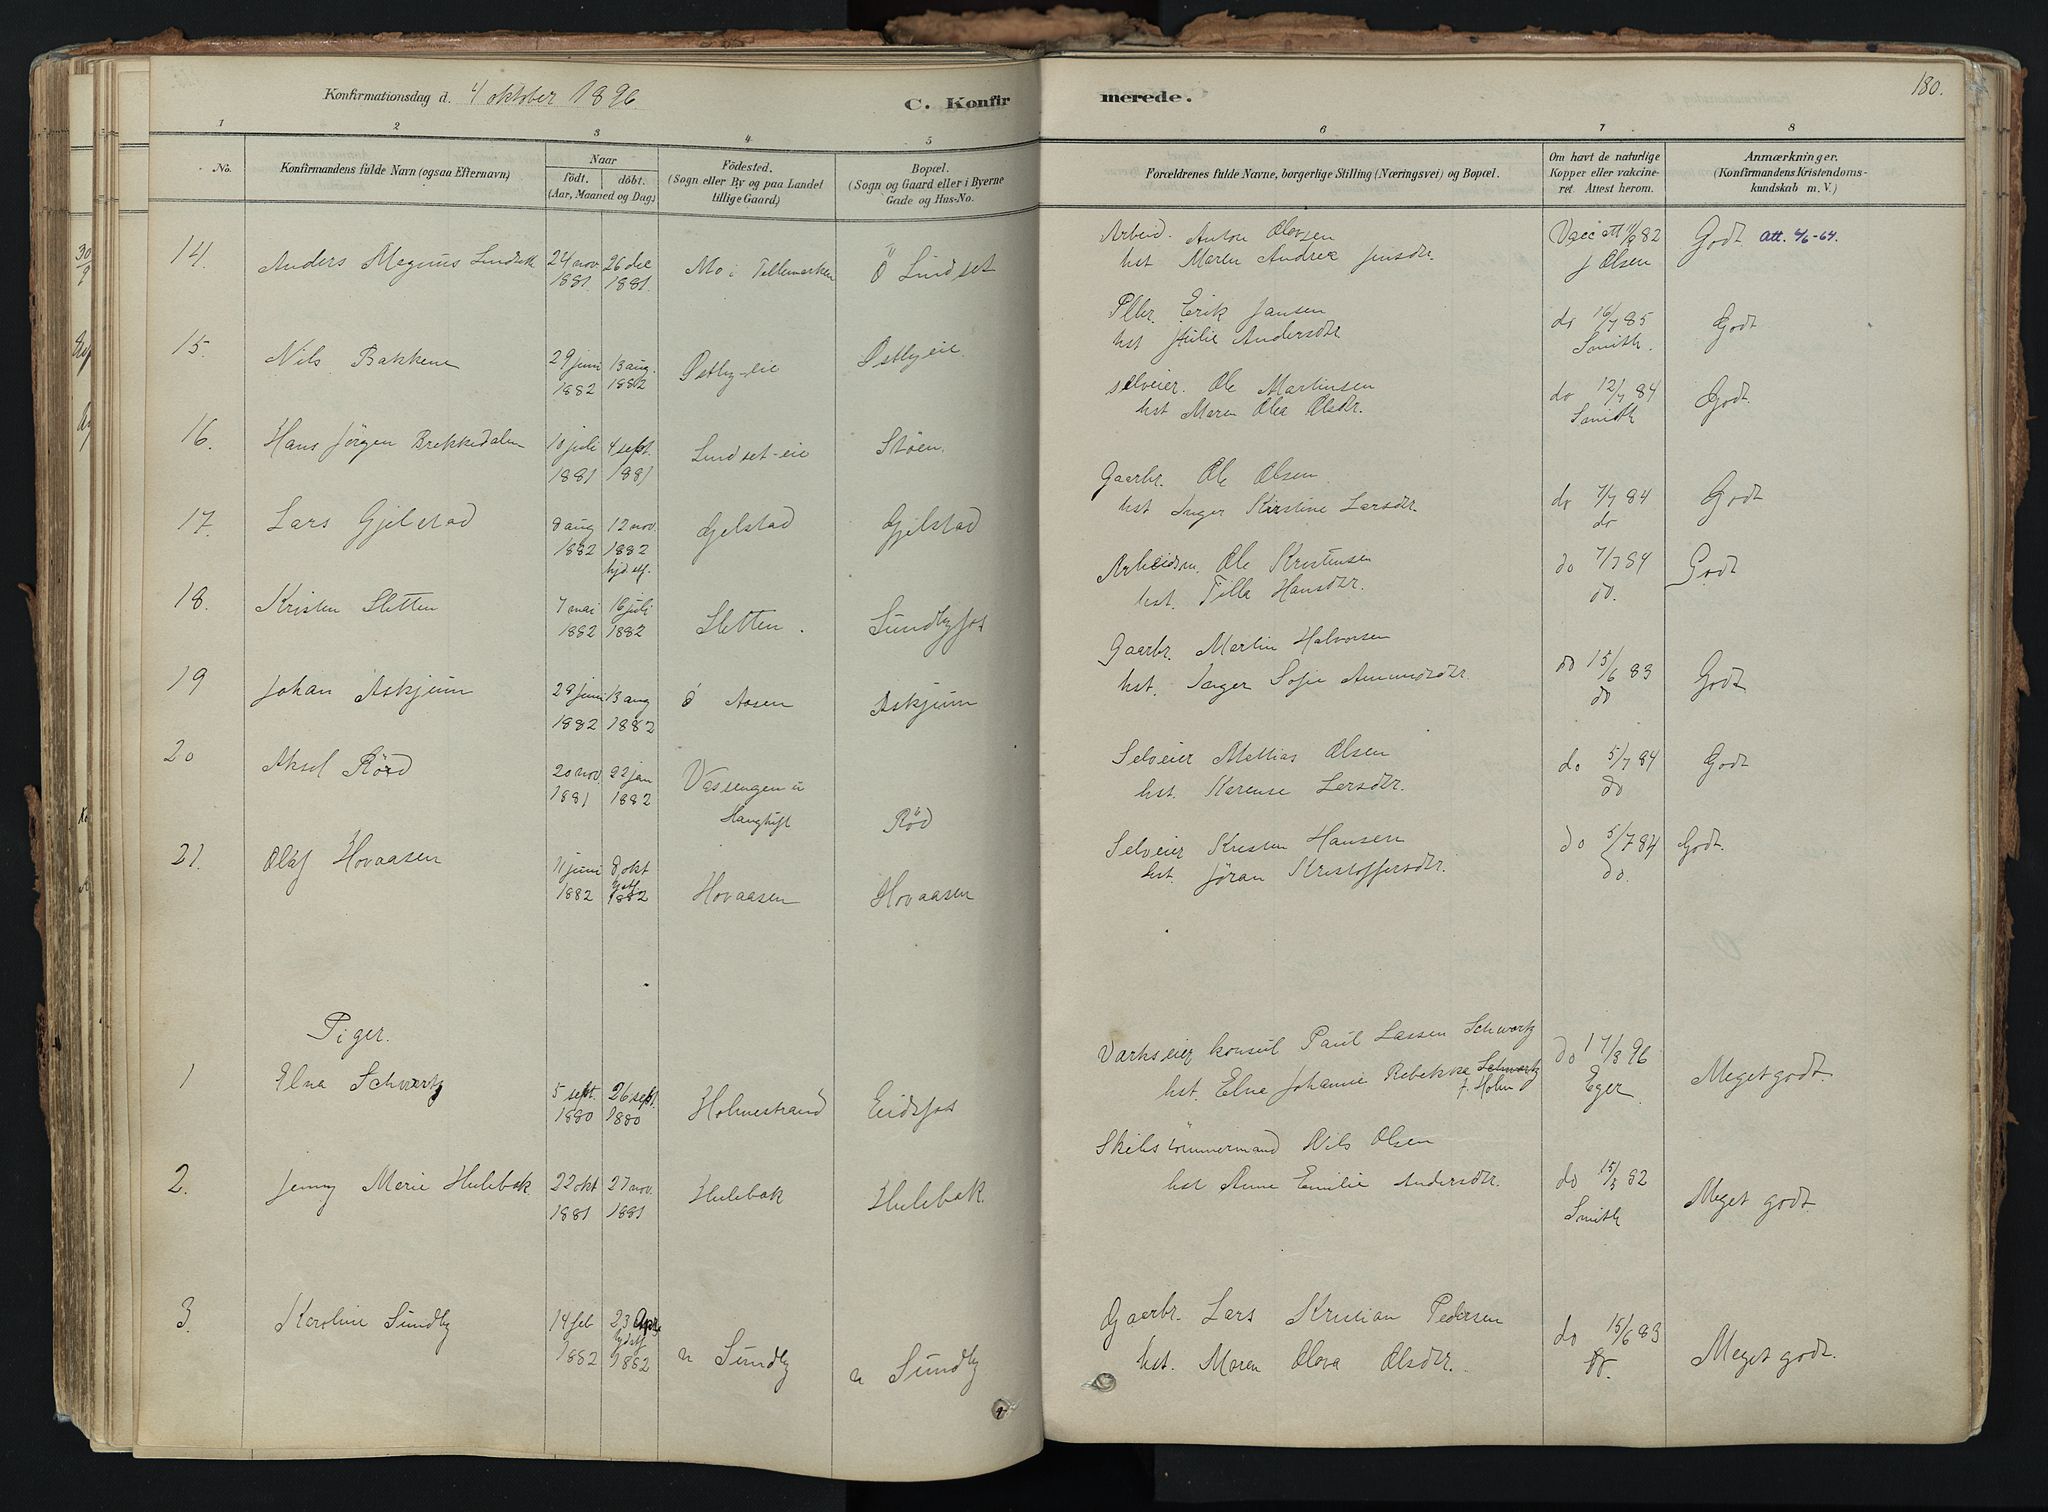 Konfirmationsdag d. 4 oktober 1896.
C. Konfirmerede.
180.
1 2 3 4 5 6 7 8
No.
Konfirmandens fulde Navn (ogsaa Efternavn)
Naar
født. døbt.
(Aar, Maaned og Dag)
Födested.
(Sogn eller By og paa Landet
tillige Gaard)
Bopæl.
(Sogn og Gaard eller i Byerne
Gade og Hus-No.
Forældrenes fulde Navne, borgerlige Stilling (Næringsvei) og Bopæl.
Om havt de naturlige
Kopper eller vakcine-
ret. Attest herom.
Anmærkninger.
(Konfirmandens Kristendoms-
kundskab m. V.)
14. Anders Magnus Lindset 24 nov 1881. 26 dec 1881. Mo i Tellemarken Ö Lindset
Arbeid. Anton Olavsen
hst Maren Andrea Jensdtr.
Vacc att 82
J Olsen
Godt Att. 4/6-64.
15. Nils Bakkene 29 juni 1882 13 aug. 1882 Østby-eie Østbyeie
Pllr. Erik Jansen
hst Julie Andersdtr
do 16/7 85
Smith.
Godt
16. Hans Jörgen Brekkedalen 10 juli 1881 4 sept. 1881 Lindset-eie Stöen.
Selveier. Ole Martinsen
hst Maren Olea Olsdtr.
do 12/7 84
Smith
Godt.
17. Lars Gjelstad 8 aug 1882 12 nov. 1882 hjd. Gjelstad Gjelstad
Gaarbr. Ole Olsen
hst Inger Kirstine Larsdtr.
do 7/7 84
do
Godt
18. Kristen Sletten 7 mai 1882 16 juli 1882 Sletten. Sundbyfos
Arbeidsm. Ole Kristensen
hst. Tilla Hansdtr.
do 7/7 84
do.
Godt
19 Johan Askjum 28 juni 1882 13 aug 1882 Ö Aasen Askjum
Gaarbr. Martin Halvorsen
hst. Inger Sofie Amundsdtr.
do 15/6 83
do
Godt
20 Aksel Röd 20 nov. 1881 22 jan 1882 Vassengen u Haugtuft Röd
Selveier Mathias Olsen
hst. Karense Larsdtr.
do 5/7 84
do
Godt
21. Olaf Hovaasen 11 juni 1882 8 okt 1882 Hovaasen Hovaasen
Selveier Kristen Hansen
hst. Jöran Kristoffersdtr.
do 5/7 84
do.
Godt.
Piger.
1 Elna Schwartz 5 sept. 1880 26 sept. 1880 Holmestrand Eidsfos
Værkseier konsul Paul Lassen Schwartz
hst. Elna Johanne Rebekka Schwartz
f. Holm
do 17/3 96
Eger.
Meget godt.
2. Jenny Marie Hulebak 22 okt 1881 27 nov. 1881 Hulebak Hulebak
Skibstömmermand Nils Olsen
hst Anne Emilie Andersdtr.
do 15/3 82
Smith
Meget godt.
3. Karoline Sundby 14 feb 1882 23 Apr. 1882 n Sundby n Sundby
Gaarbr. Lars Kristian Pedersen
hst. Maren Olava Olsdtr.
do 15/6 83
do.
Meget godt.